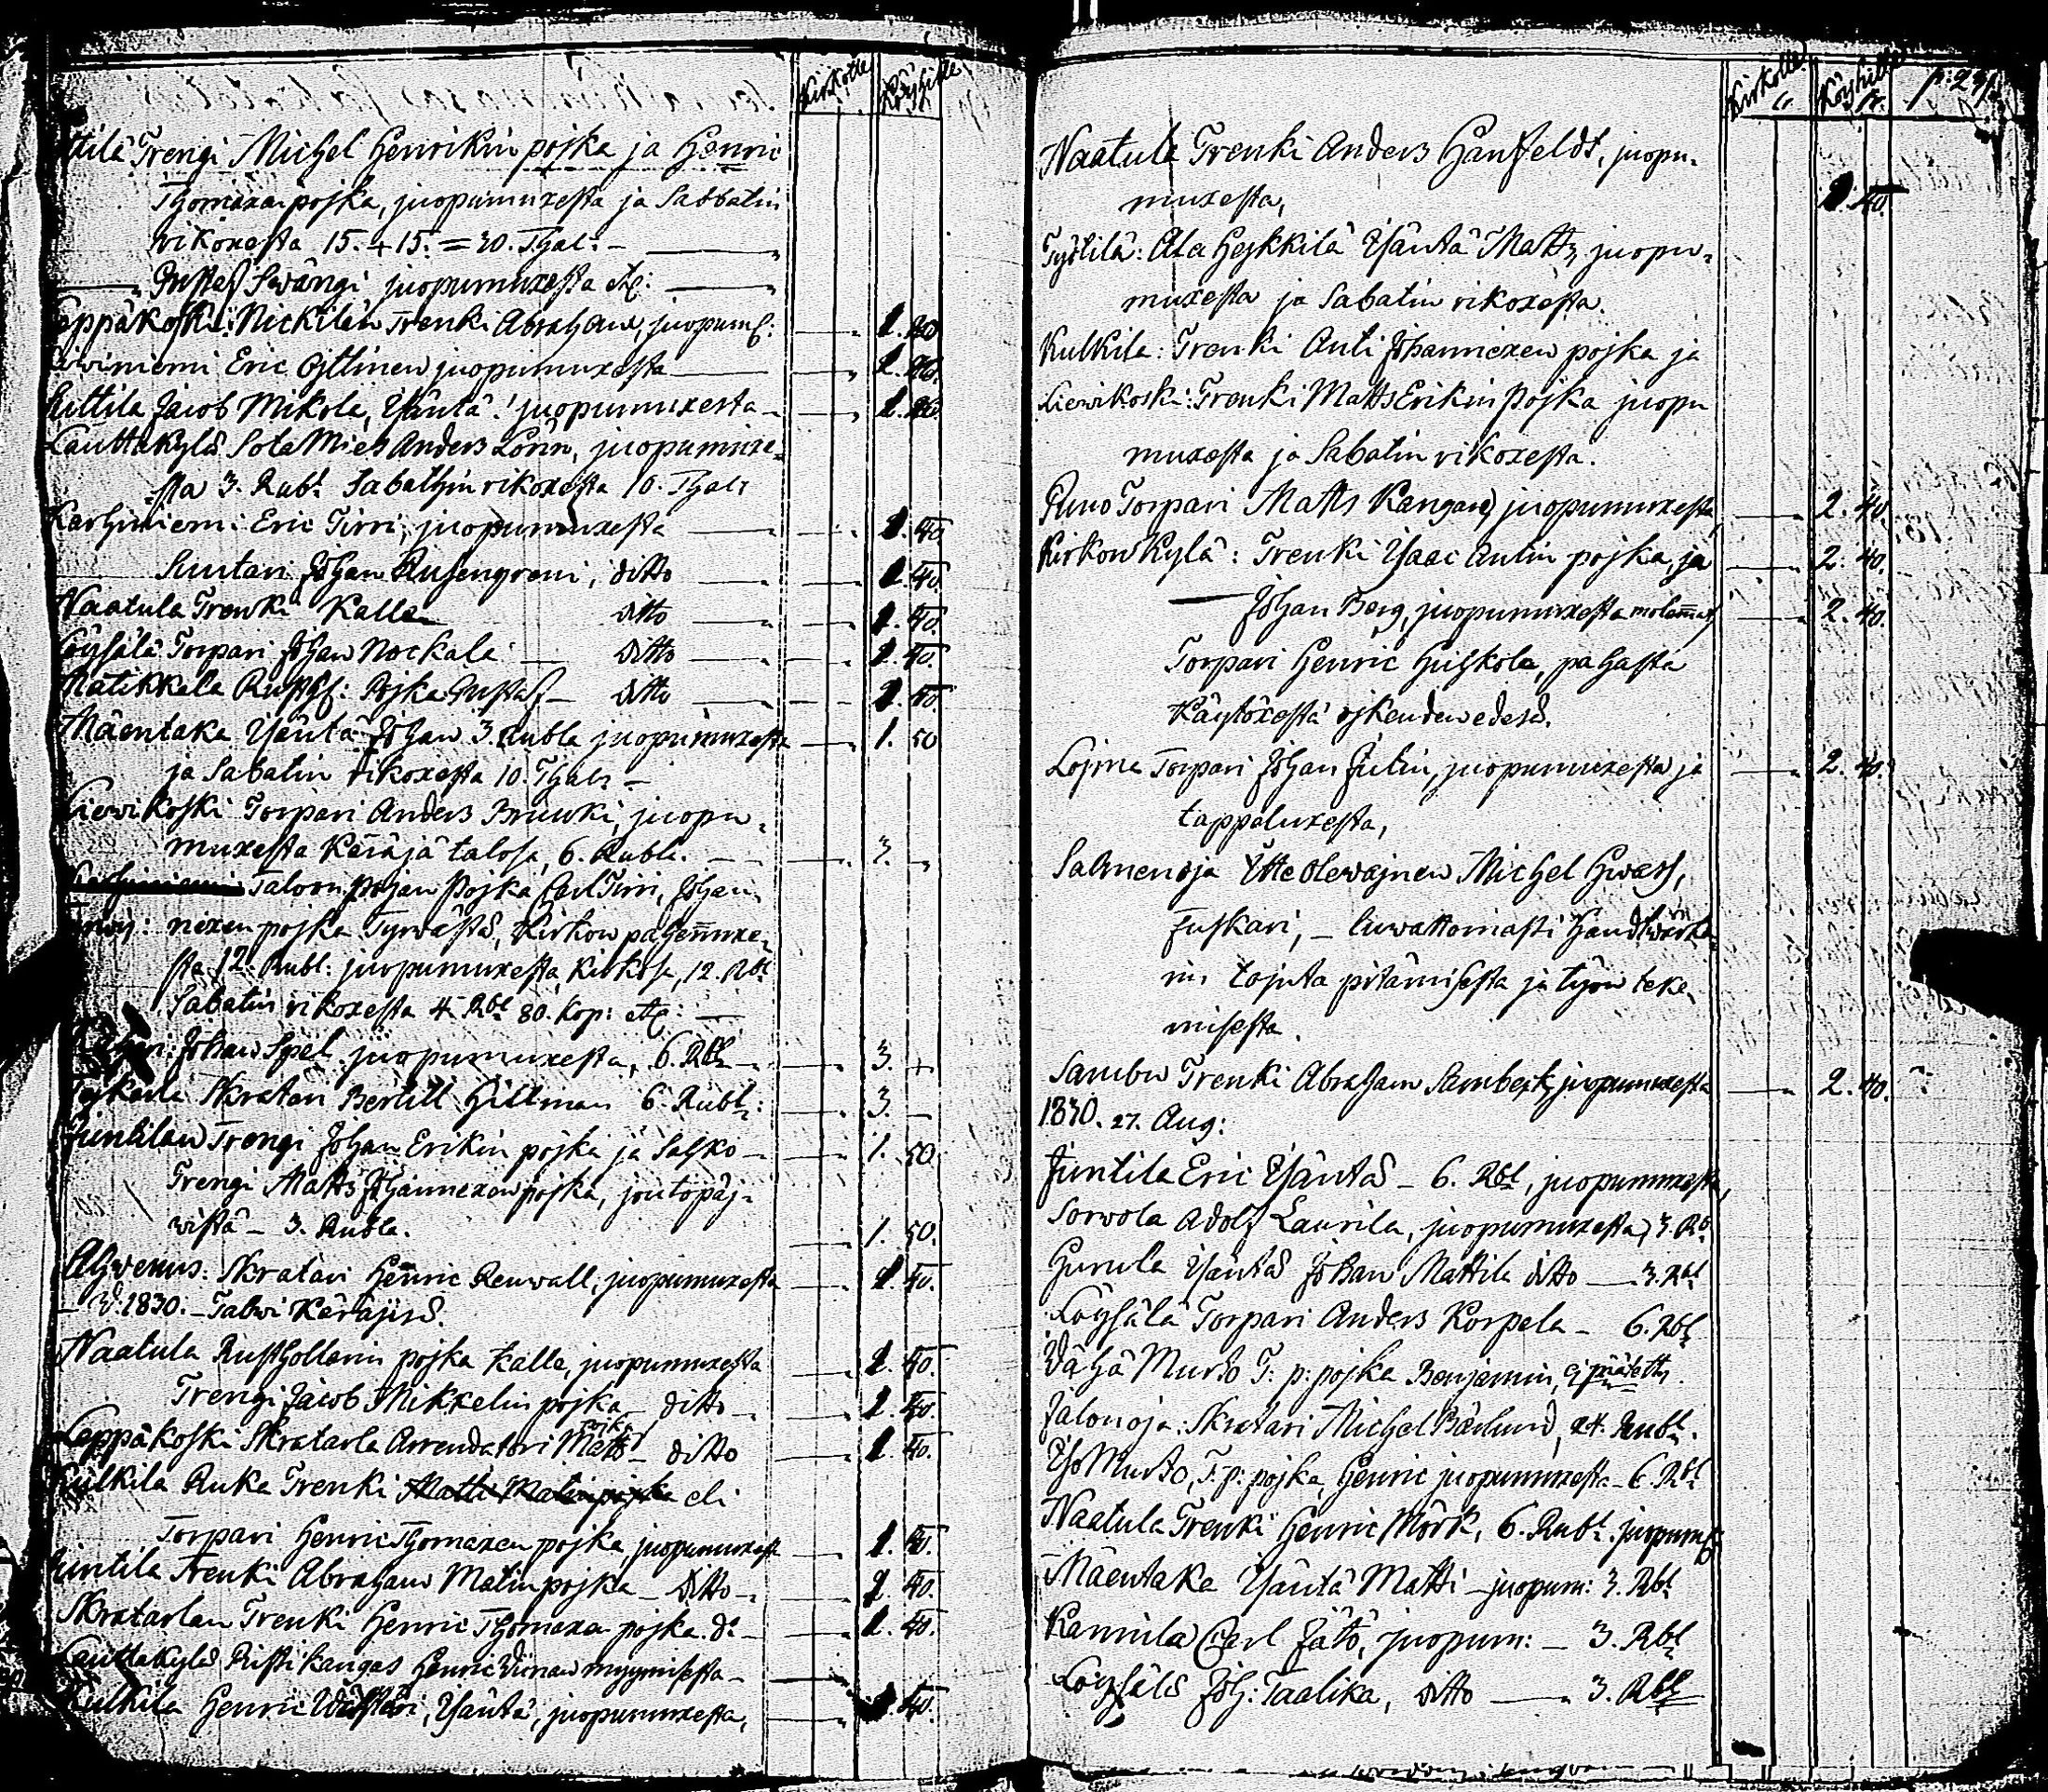 Kirkolle Köyhille
Trengi Michel Henrikin pojka ja Henric
Thomaxen pojka, juopumuxesta ja Sabbatin
rikoxesta 15. + 15. = 30. Thal:
Gustaf Swängi juopumuxesta etc:
Leppäkoski: Nickilän Trenki Abraham, juopumx: 2. 40
Eric Ojttinen juopumuxesta 2. 40.
Huittila Jacob Mikola, Isäntä! juopumuxesta 2. 40
Lauttakylä Sota Mies Anders Lörn, juopumuxe-
sta 3. Rubl Sabathin rikoxesta 10. Thalr
Karhiniemi Eric Tirri, juopumuxesta 2. 40
Suutari Johan Rusengreni, ditto 2. 40.
Naatula Trenki Kalle ditto 2. 40.
Löysälä Torpari Johan Nockala ditto 2. 40.
Matikkala Rusth: Pojka Gustaf ditto 2. 40.
Mäentaka Isäntä Johan 3. Rubla juopumuxesta 1. 50
ja Sabatin rikoxesta 10. Thalr
Kiewikoski Torpari Anders Bruuki, juopu-
muxesta Käräjä talosa, 6. Rubl. 3.
Talon pojan Pojka Carl Tirri, Johan-
nexen pojka Tyrwästä, Kirkon pahennuxe-
sta 12. Rubl: juopumuxesta Kirkosa, 12. Rbl
Sabatin rikoxesta 4 Rbl 80. Kop: etc:
Johan Spel juopumuxesta, 6. Rbl 3.
Skratari Bertill Hillman 6. Rubl: 3.
Juntilan Trengi Johan Erikin pojka ja Sahko 1. 50
Trengi Matts Johannexen pojka, joutopäj-
wistä 3. Rubla. 1. 50.
Ahwenus: Skratari Henric Renwall, juopumuxesta 2 40.
w. 1830. Talwi Käräjisä.
Naatula Rusthollarin pojka Kalle, juopumuxesta 2. 40.
Trengi Jacob Mikkelin pojka ditto 2. 40.
Leppäkoski Skratarla Arrendatori Matts pojka ditto 2. 40.
Kulkila Ruka Trenki Matti Matin pojka eli
Torpari Henric Thomaxen pojka, juopumuxesta 2. 40.
Juntila Trenki Abraham Matin pojka ditto 2. 40.
Skratarlan Trenki Henric Thomaxen pojka. do 2. 40.
Lauttakylä Ristikangas Henric Viinan myymisestä
Kulkila Henric Wästäri, Isäntä, juopumuxesta, 40.
Kirkolle Köyhille
Naatula Trenki Anders Hanfeldt, juopu-
muxesta, 2. 40.
Työtilä: Ala Hejkkilä Isäntä Matts juopu-
muxesta ja Sabatin rikoxesta.
Kulkila: Trenki Anti Johannexen pojka ja
Kiewikoski: Trenki Matts Erikin pojka juopu
muxesta ja Sabatin rikoxesta.
Puno Torpari Matts Kangan, juopumuxesta 2. 40.
Kirkon Kylä: Trenki Isaac Antin pojka, ja 2. 40.
Johan Berg, juopumuxesta molemat 2. 40.
Torpari Henric Huhkola, pahasta
Käytöxestä ojkeuden edesä.
Lojma Torpari Johan Julin, juopumuxesta ja 2. 40.
tappeluxesta,
Salmenoja Itte olewajnen Michel Hwass,
Fuskari, luwattomasti Handtwärkä-
rin tojuta pitämisestä ja työn teke-
misestä.
Sambu Trenki Abraham Sambert, juopumuxesta 2. 40.
1830. 27. Aug:
Juntila Eric Isäntä 6. Rbl, juopumuxesta,
Sorvola Adolf Laurila, juopumuxesta, 3. Rb.
Hurula Isäntä Johan Mattila ditto 3. Rbl
Löysälä Torpari Anders Korpela 6. Rbl
Wähä Murto T: p: pojka Benjamin, ej päätetty.
Jalonoja: Skratari Michel Bärlund, 24. Rubl.
Iso Murto, T. p: pojka, Henric juopumuxesta 6. Rbl
Naatula Trenki Henric Mörk, 6. Rubl. juopumx
Mäentaka Isäntä Matti juopum: 3. Rbl
Kannila Carl Jätö, juopum: 3. Rbl
Löysälä Joh: Taalika, ditto 3. Rbl